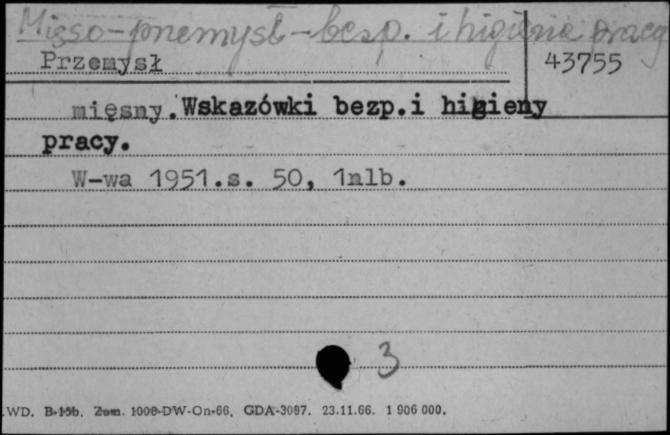 Mięso-przemysł-bezp. i higiena pracy
Przemysł 43755
mięsny. Wskazówki bezp. i higieny
pracy.
W-wa 1951.s. 50, 1nlb.
3
WD. B-15b. Zam. 1008-DW-On-66. GDA-3087. 23.11.66. 1 906 000.